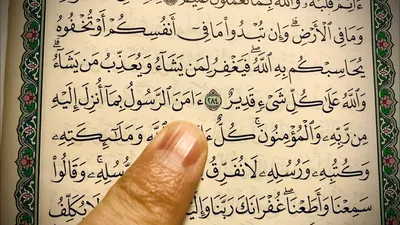 ءَاثِمٌ قَلْبُهُۥ ۗ وَٱللَّهُ بِمَا تَعْمَلُونَ
وَمَا فِى ٱلْأَرْضِ ۗ وَإِن تُبْدُوا۟ مَا فِىٓ أَنفُسِكُمْ أَوْ تُخْفُوهُ
يُحَاسِبْكُم بِهِ ٱللَّهُ ۖ فَيَغْفِرُ لِمَن يَشَآءُ وَيُعَذِّبُ مَن يَشَآءُ ۗ
وَٱللَّهُ عَلَىٰ كُلِّ شَىْءٍ قَدِيرٌ ٢٨٤ ءَامَنَ ٱلرَّسُولُ بِمَآ أُنزِلَ إِلَيْهِ
مِن رَّبِّهِۦ وَٱلْمُؤْمِنُونَ ۚ كُلٌّ وَمَلَٰٓئِكَتِهِۦ
وَكُتُبِهِۦ وَرُسُلِهِۦ لَا نُفَرِّقُ رُّسُلِهِۦ ۚ وَقَالُوا۟
سَمِعْنَا وَأَطَعْنَا ۖ غُفْرَانَكَ رَبَّنَا لَا يُكَلِّفُ